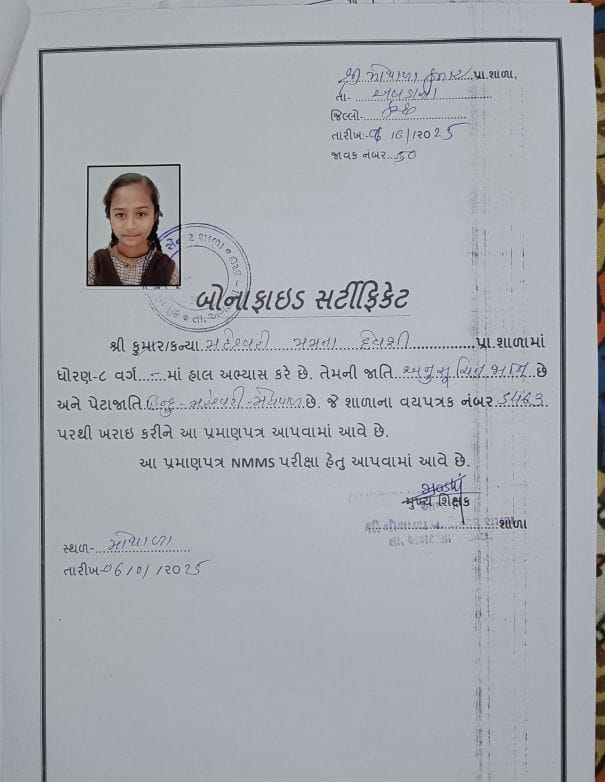 શ્રી મોથાળા કુમાર પ્રા.શાળા,
તા- અબડાસા
જિલ્લો- કચ્છ
તારીખ:- /૨૦25
જાવક નંબર...50
બોનાફાઇડ સર્ટીફિકેટ
શ્રી કુમાર/કન્યા મહેશ્વરી મમતા દેવશી પ્રા.શાળામાં
ધોરણ-૮ વર્ગ - માં હાલ અભ્યાસ કરે છે. તેમની જાતિ અનુસૂચિત જાતિ છે
અને પેટાજાતિ હિન્દુ-મહેશ્વરી-મેઘવાળ છે. જે શાળાના વયપત્રક નંબર
પરથી ખરાઇ કરીને આ પ્રમાણપત્ર આપવામાં આવે છે.
આ પ્રમાણપત્ર NMMS પરીક્ષા હેતુ આપવામાં આવે છે.
મુખ્ય શિક્ષક
શાળા
સ્થળ- મોથાળા
તારીખ- /૨૦25